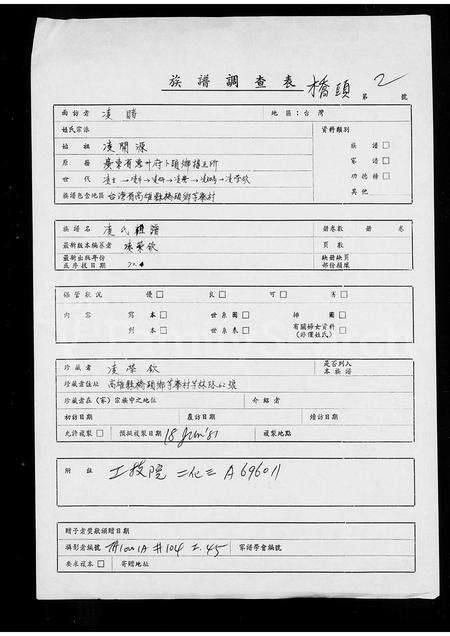 族譜調查表 橋頭 第 2 號
面訪者 凌晴 地區:台灣
姓氏宗派 資料類別
始祖 凌開源 族譜□
原籍 廣東省惠州府 家譜□
世代 功德榜□
族譜包含地區 台灣省高雄縣橋頭鄉芋寮村 其他
族譜名 凌氏族譜 册卷數 册 卷
最新版本編纂者 凌榮欽 頁數
最新出版年份 缺册缺頁
或序技日期 部份損壞
保管狀況 優□ 良□ 可□ 劣□
內容 寫本□ 世系圖□ 揷圖□
刊本□ 世系表□ 有關婦女資料□
(非僅姓氏)
珍藏者 凌榮欽 是否列入
本族譜
珍藏者住址 高雄縣橋頭鄉芋寮村芋林路62號
珍藏者在(家)宗族中之地位 介紹者
初訪日期 覆訪日期 續訪日期
允許複製□ 預擬複製日期 18 Jun '81 複製地點
附註 工技院 二化三 A696011
贈予者獎勵頒贈日期
攝影者編號 #104 I.45 家譜學會編號
要求複本□ 寄贈地址